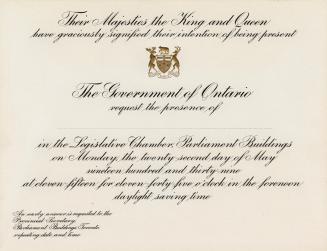 Their Majesties the King and Queen
have graciously signified their intention of being present
The Government of Ontario
request the presence of
in the Legislative Chamber, Parliament Buildings
on Monday, the twenty second day of May
nineteen hundred and thirty-nine
at eleven-fifteen for eleven-forty five o'clock in the forenoon
daylight saving time
An early answer is requested to the
Provincial Secretary,
Parliament Buildings Toronto
repeating date and time